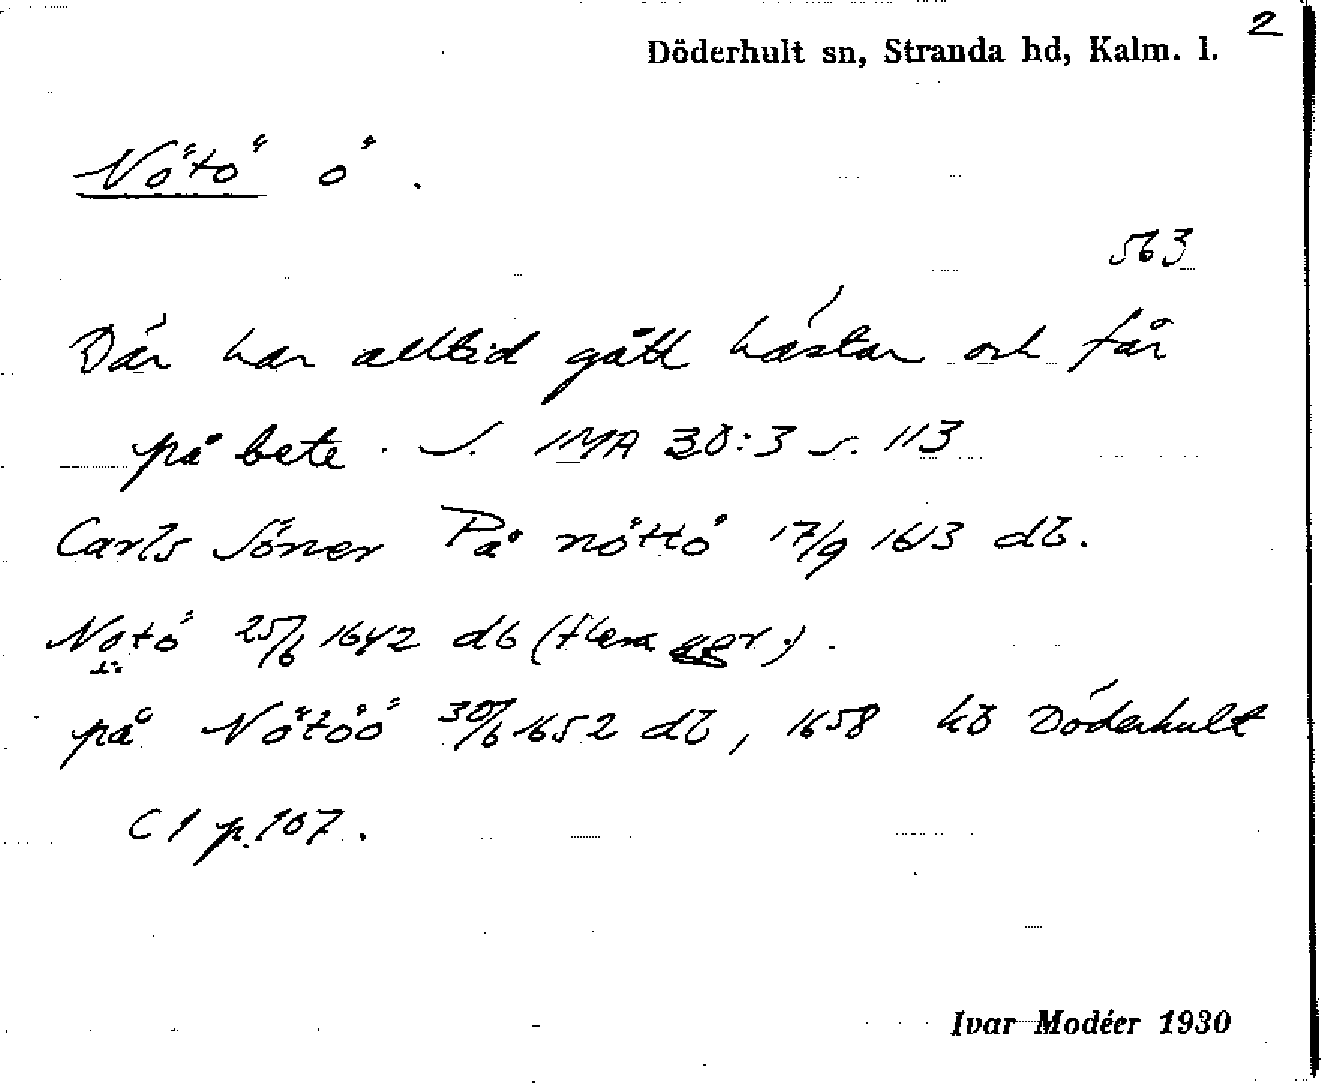 2
Döderhult sn, Stranda hd, Kalm. l.
Nötö ö.
563
Där har alltid gått hästar och får
på bete. S. IMA 30:3 s. 113
Carls Söner På nöttö 17/9 1613 db.
Notö 25/6 1642 db (flera ggr.).
på Nötöö 30/6 1652 db, 1658 kb Döderhult
C 1 p. 107.
Ivar Modéer 1930